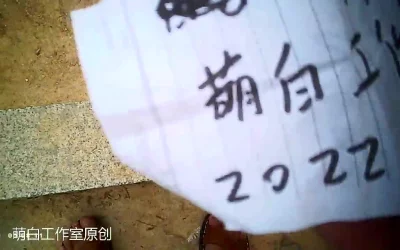 萌白工
2022
萌白工作室原创